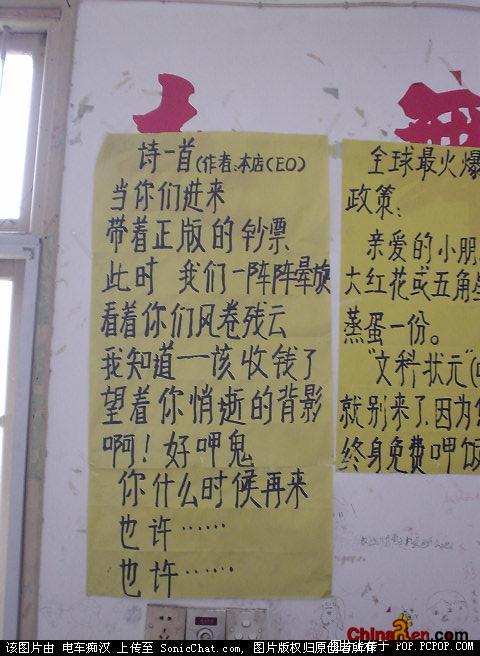 诗一首(作者:本店CEO)
当你们进来
带着正版的钞票
此时 我们一阵阵晕旋
看着你们风卷残云
我知道一该收钱了
望着你悄逝的背影
啊！好呷鬼
你什么时候再来
也许……
也许……
全球最火爆
政策:
亲爱的小朋
大红花或五角星
蒸蛋一份。
"文科状元"(
就别来了,因为
终身免费呷饭
该图片由 电车痴汉 上传至 SonicChat.com, 图片版权归原创者所有
China3en.com
图片来源于 POP.PCPOP.COM